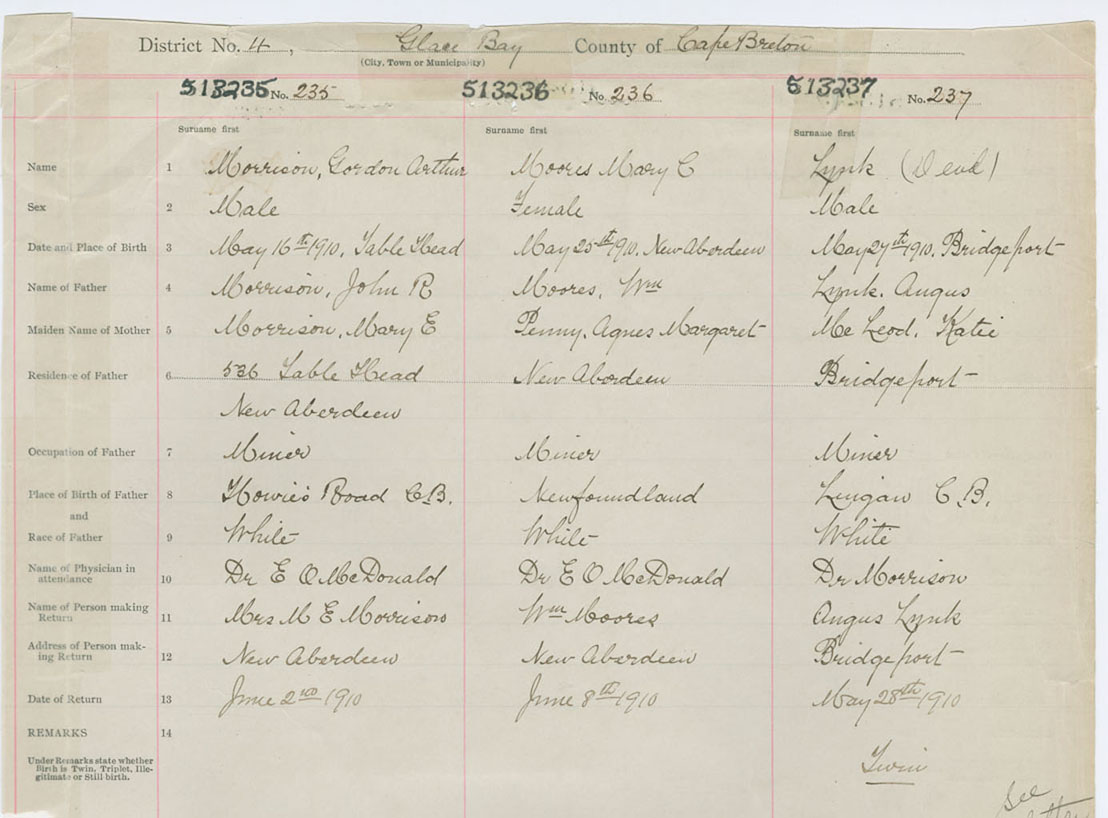 District No. 4, Glace Bay County of Cape Breton
(City, Town or Municipality)
513235 No. 235 513236 No. 236 513237 No. 237
Surname first Surname first Surname first
Name 1 Morrison, Gordon Arthur Moores Mary C Lynk (Dead)
Sex 2 Male Female Male
Date and Place of Birth 3 May 16th 1910, Table Head May 25th 1910, New Aberdeen May 27th 1910, Bridgeport
Name of Father 4 Morrison, John R Moores, Wm Lynk, Angus
Maiden Name of Mother 5 Morrison, Mary E Penny, Agnes Margaret Mc Leod, Katie
Residence of Father 6 536 Table Head New Aberdeen Bridgeport
New Aberdeen
Occupation of Father 7 Miner Miner Miner
Place of Birth of Father 8 Howie's Road C.B. Newfoundland Lingan C.B.
and
Race of Father 9 White White White
Name of Physician in
attendance 10 Dr E O McDonald Dr E O McDonald Dr Morrison
Name of Person making
Return 11 Mrs M E Morrison Wm Moores Angus Lynk
Address of Person mak-
ing Return 12 New Aberdeen New Aberdeen Bridgeport
Date of Return 13 June 2nd 1910 June 8th 1910 May 28th 1910
REMARKS 14
Under Remarks state whether
Birth is Twin, Triplet, Ille-
gitimate or Still birth.
Twin
See